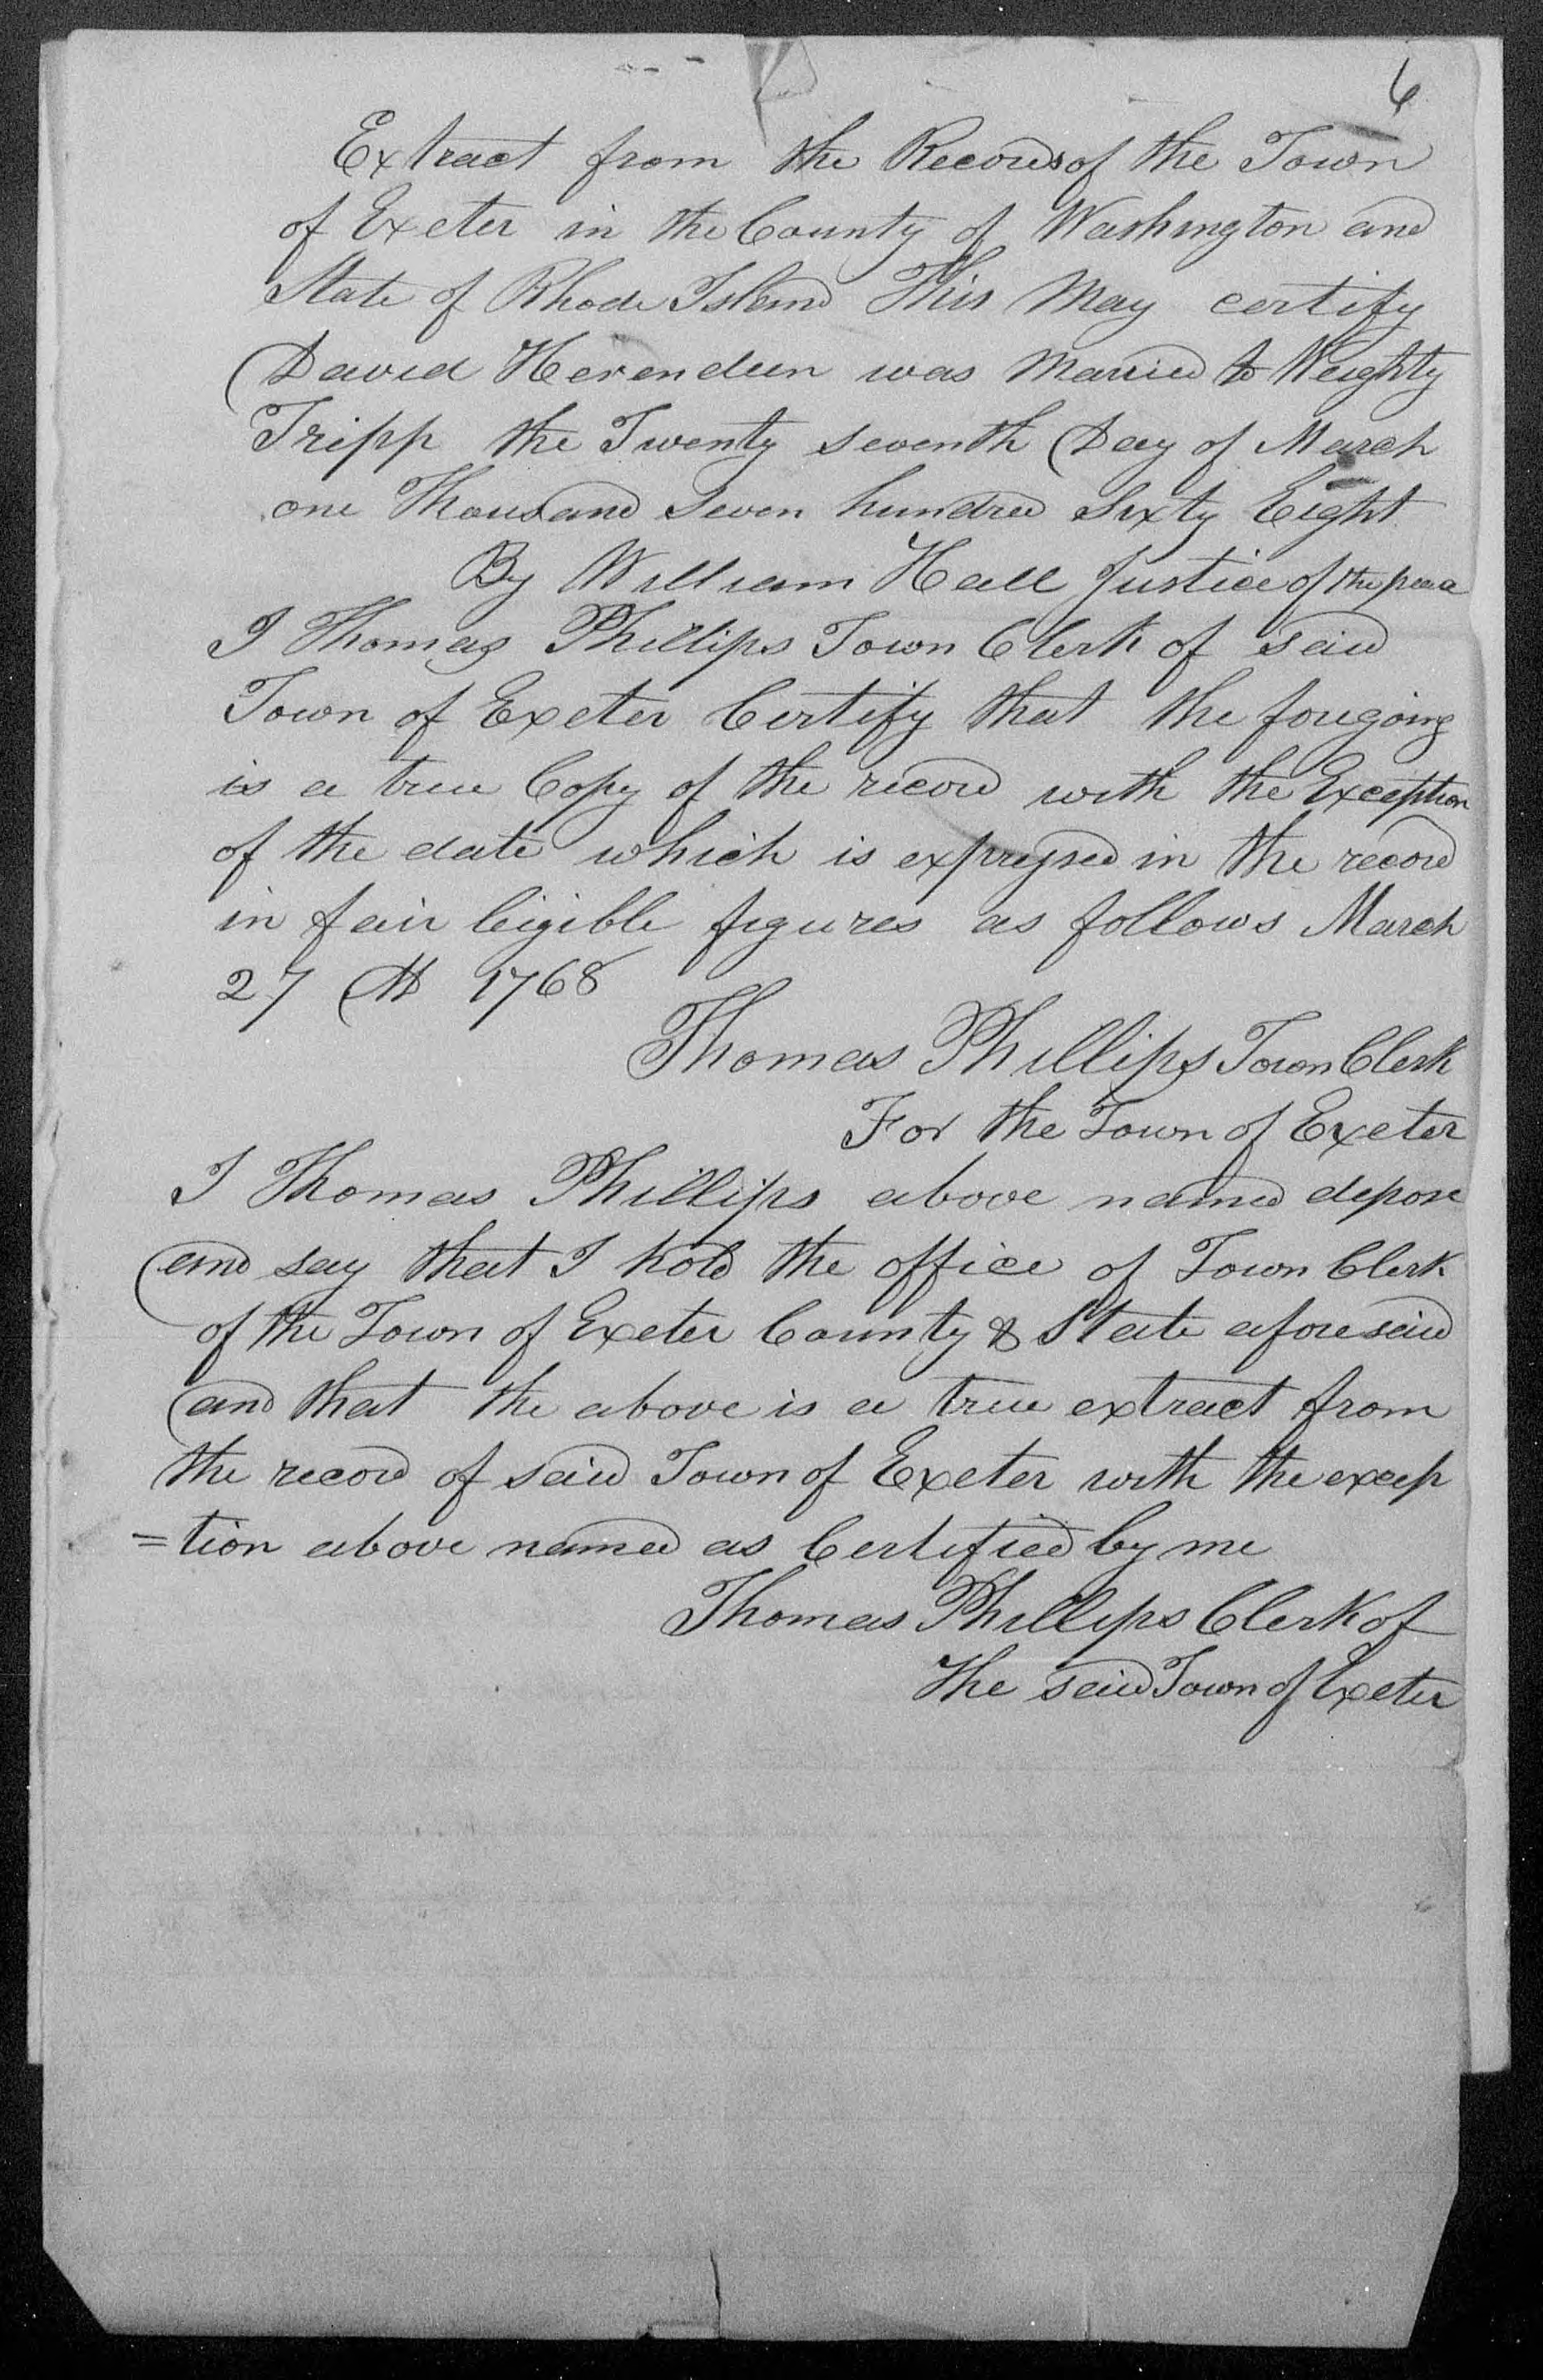 6
Extract from the Records of the Town
of Exeter in the County of Washington and
State of Rhode Island This May certify
David Herendeen was Married to Weighty
Tripp the Twenty seventh Day of March
one Thousand Seven hundred Sixty Eight
By William Hall Justice of the peace
I Thomas Phillips Town Clerk of said
Town of Exeter Certify that the foregoing
is a true Copy of the record with the Exception
of the date which is expressed in the record
in fair legible figures as follows March
27 AD 1768
Thomas Phillips Town Clerk
For the Town of Exeter
I Thomas Phillips above named depose
and say that I hold the office of Town Clerk
of the Town of Exeter County & State aforesaid
and that the above is a true extract from
the record of said Town of Exeter with the excep
=tion above named as Certified by me
Thomas Phillips Clerk of
the said Town of Exeter